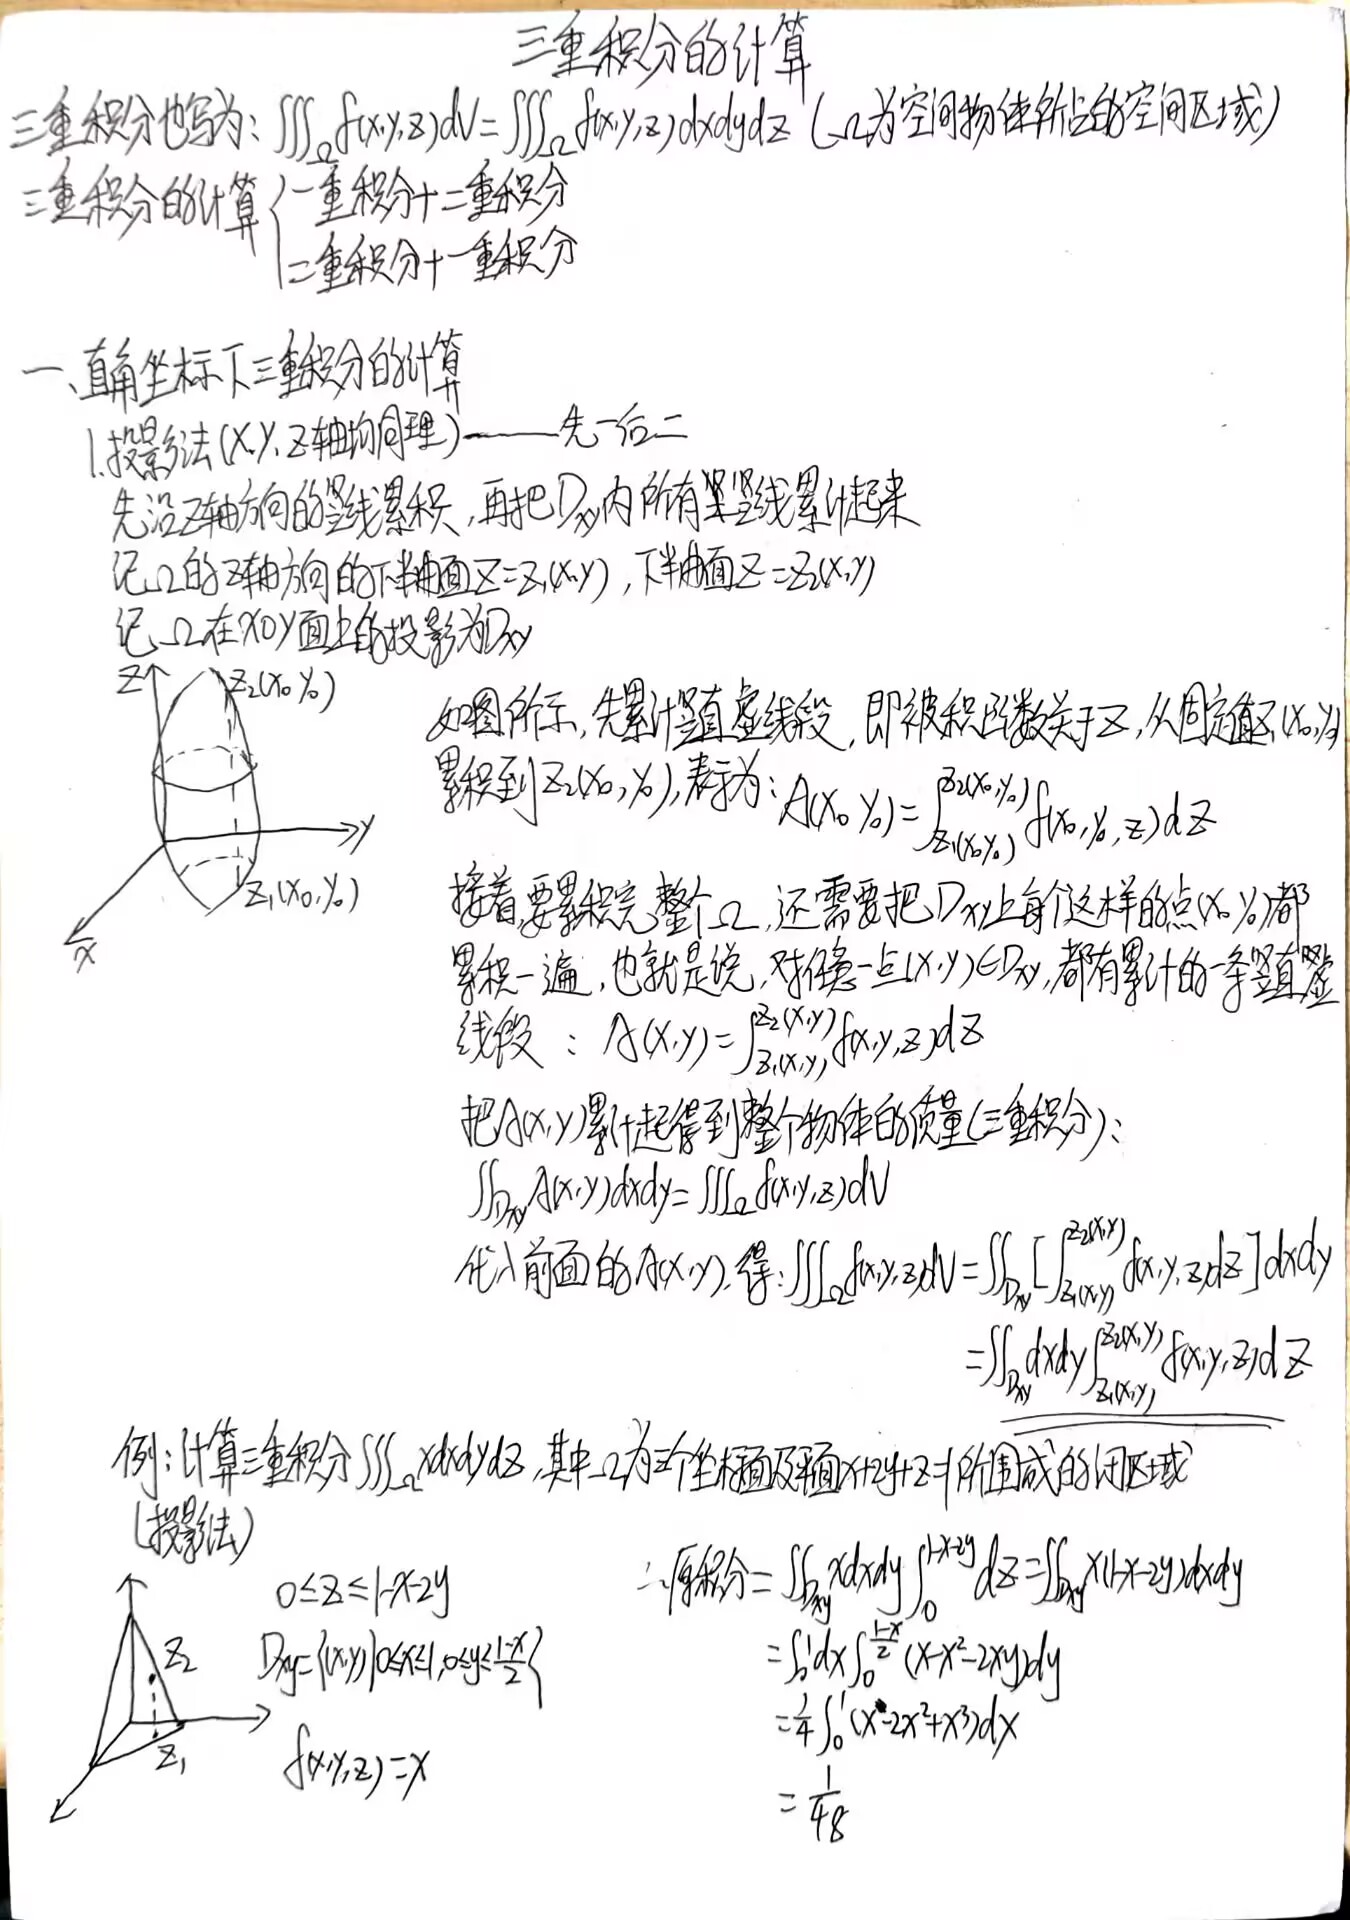 三重积分的计算
三重积分也写为：∭_Ω f(x,y,z)dV=∭_Ω f(x,y,z)dxdydz (Ω为空间物体所占的空间区域)
三重积分的计算{一重积分+二重积分
二重积分+一重积分
一、直角坐标下三重积分的计算
1.投影法(X,Y,Z轴均同理)——先一后二
先沿Z轴方向的竖线累积，再把Dxy内所有竖线累计起来
记Ω的Z轴方向的下半曲面Z=Z₁(x,y)，下半曲面Z=Z₂(x,y)
记Ω在XOY面上的投影为Dxy
Z
Z₂(x₀,y₀)
y
Z₁(x₀,y₀)
x
如图所示，先累计竖直虚线段，即被积函数关于Z，从固定值Z₁(x₀,y₀)
累积到Z₂(x₀,y₀)，表示为：A(x₀,y₀)=∫_{Z₁(x₀,y₀)}^{Z₂(x₀,y₀)} f(x₀,y₀,z)dz
接着，要累积完整个Ω，还需要把Dxy上每个这样的点(x₀,y₀)都
累积一遍，也就是说，对任意一点(x,y)∈Dxy，都有累计的一条竖直虚
线段：A(x,y)=∫_{Z₁(x,y)}^{Z₂(x,y)} f(x,y,z)dz
把A(x,y)累计起得到整个物体的质量(三重积分)：
∬_{Dxy} A(x,y)dxdy=∭_Ω f(x,y,z)dV
代入前面的A(x,y)，得：∭_Ω f(x,y,z)dV=∬_{Dxy}[∫_{Z₁(x,y)}^{Z₂(x,y)} f(x,y,z)dz]dxdy
=∬_{Dxy}dxdy∫_{Z₁(x,y)}^{Z₂(x,y)} f(x,y,z)dz
例：计算三重积分∭_Ω xdxdydz，其中Ω为三个坐标面及平面x+2y+z=1所围成的闭区域
(投影法)
Z₂
Z₁
0≤z≤1-x-2y
Dxy={(x,y)|0≤x≤1,0≤y≤(1-x)/2}
f(x,y,z)=x
∴原积分=∬_{Dxy}xdxdy∫_0^{1-x-2y}dz=∬_{Dxy}x(1-x-2y)dxdy
=∫_0^1dx∫_0^{(1-x)/2}(x-x²-2xy)dy
=1/4∫_0^1(x-2x²+x³)dx
=1/48